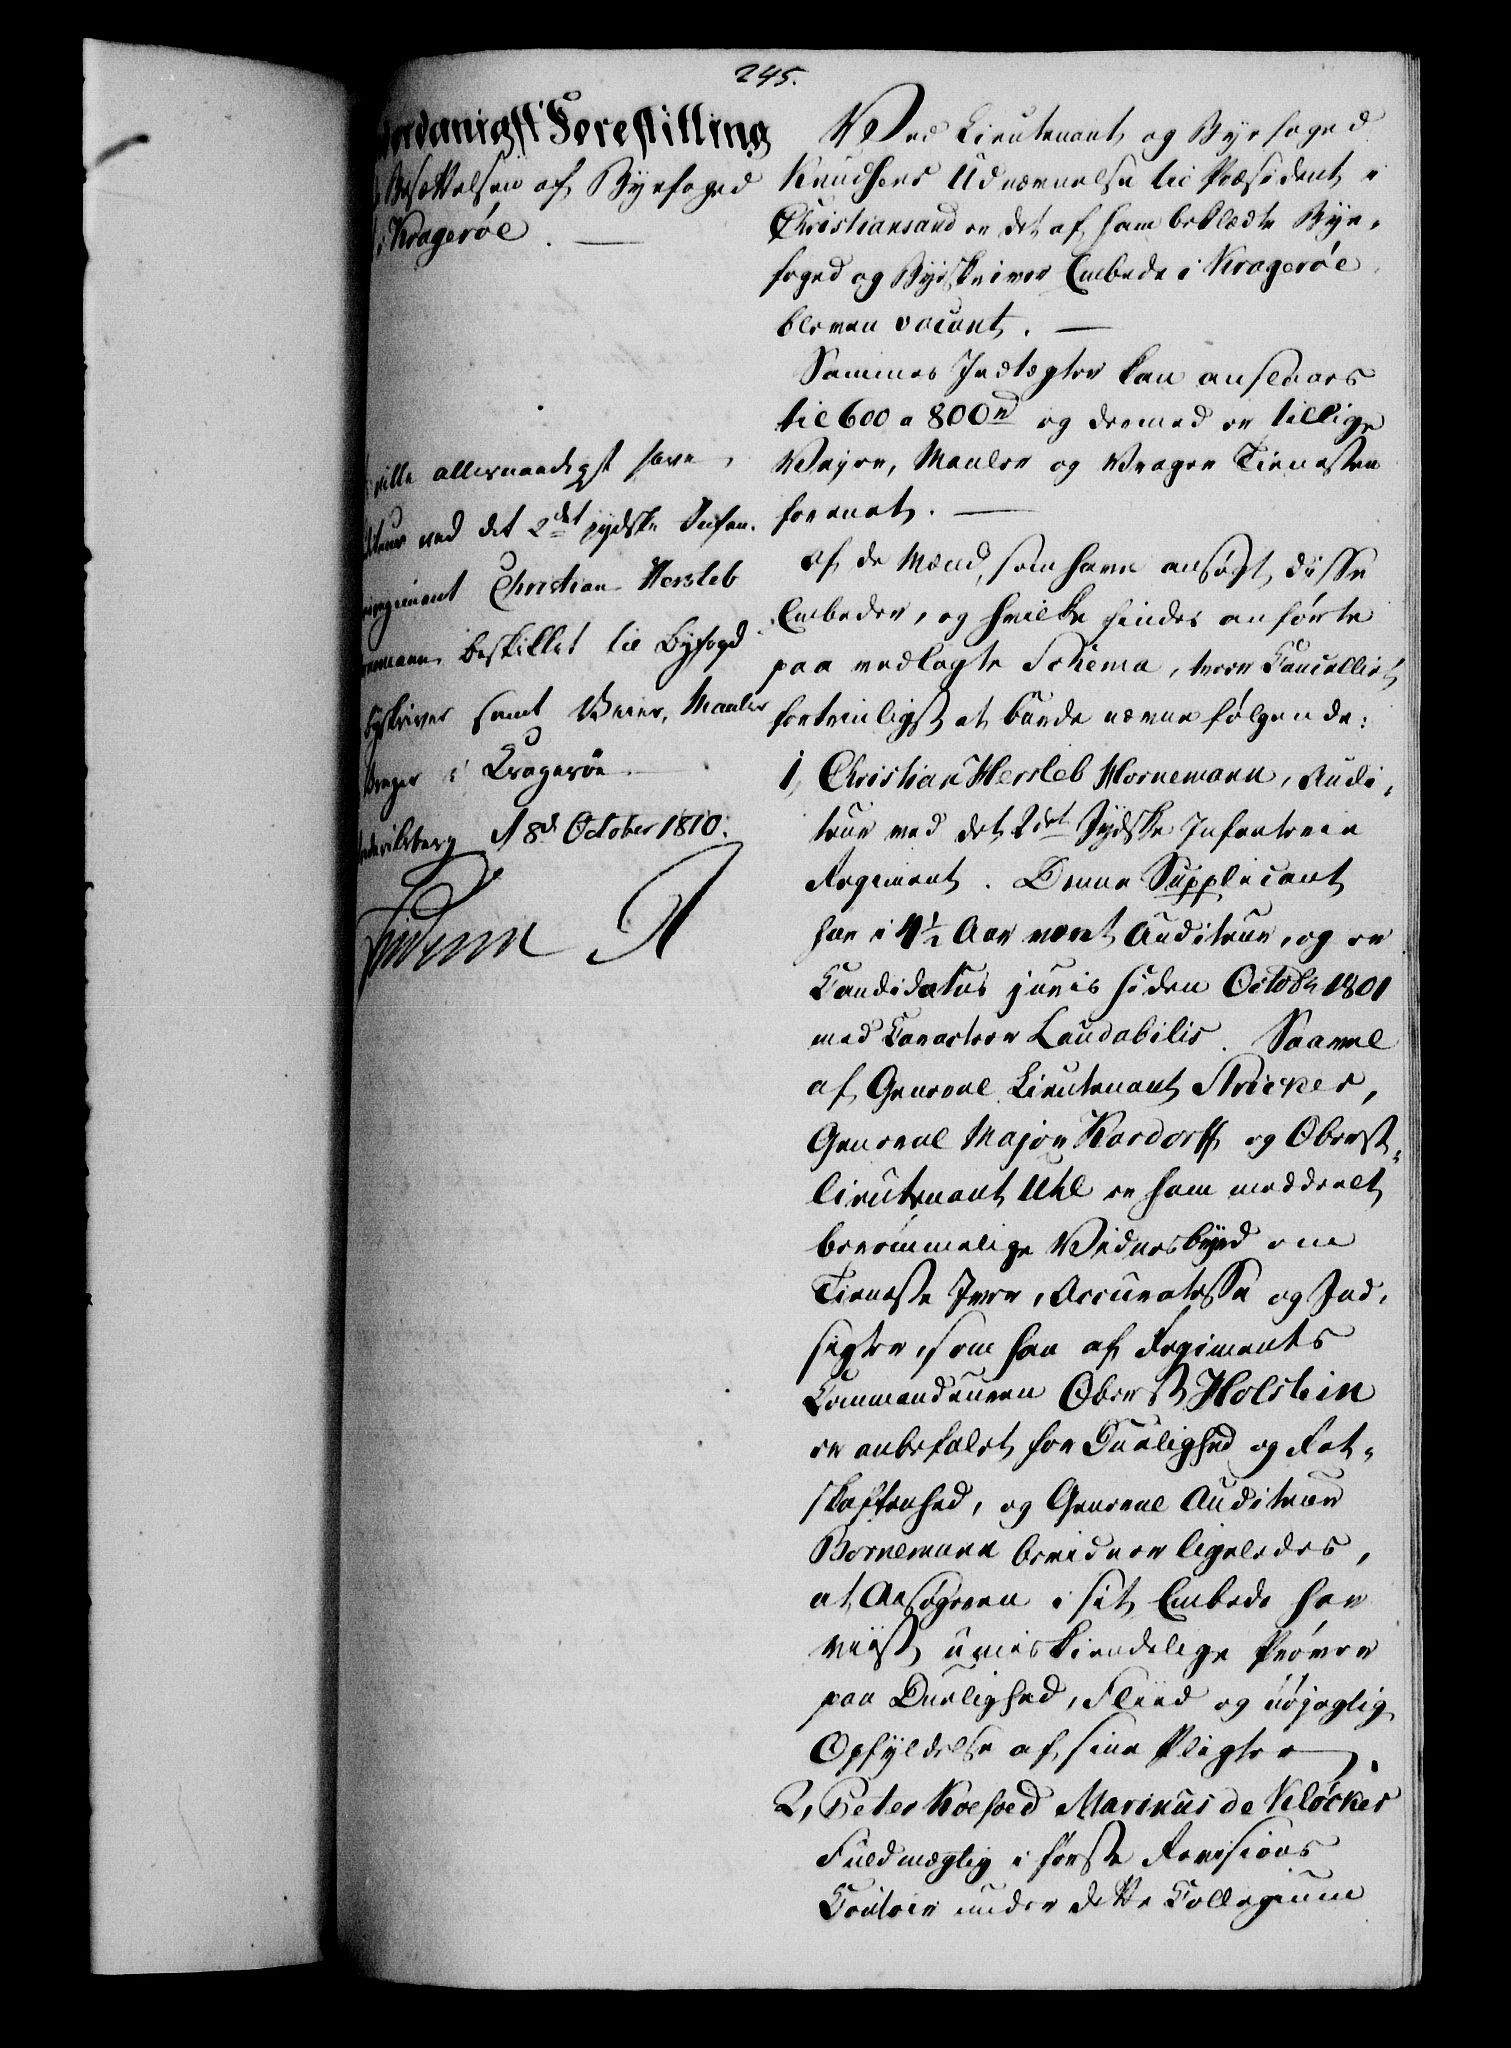 245.
Forestilling
Besættelsen af Byefoged
i Kragerøe. —
ville allernaadigst have
ved det 2det jydske Infan-
Christian Hersleb
beskikket til Byfoged
Byskriver samt Veier, Maaler
Vrager i Kragerøe
d 8d October 1810.
Friderich R
Ved Lieutenant og Byefoged
Knudsens Udnævnelse til Præsident i
Christiansand er det af ham beklædte Bye-
foged og Byeskriver Embede i Kragerøe
bleven vacant. —
Sammes Indtægter kan ansłaaes
til 600 a 800 rd og dermed er tillige
Vejer, Maaler og Vrager Tienesten
forenet. —
Af de Mænd, som have ansøgt disse
Embeder, og hvilke findes anførte
paa vedlagte Schema, troer Cancelliet
fortrinligst at burde nævne følgende:
1, Christian Hersleb Hornemann, Audi-
teur ved det 2det Jydske Infanterie
Regiment. Denne Supplicant
har i 4½ Aar været Auditeur, og er
Candidatus juris siden Octobr 1801
med Caracteer Laudabilis. Saavel
af General Lieutenant Stricker,
General Major Kardorff og Oberst-
lieutenant Uhl er ham meddeelt
berømmelige Vidnesbyrd om
Tieneste Iver, Accuratesse og Ind-
sigter, som han af Regiments
Commandeuren Oberst Holstein
er anbefalet for Duelighed og Ret-
skaffenhed, og General Auditeur
Bornemann bevidner ligeledes,
at Ansøgeren i sit Embede har
viist umiskiendelige Prøver
paa Duelighed, Fliid og nøjagtig
Opfyldelse af sine Pligter.
2, Peter Koefoed Marinus de Kløcker
Fuldmægtig i første Revisions
Contoir under dette Collegium